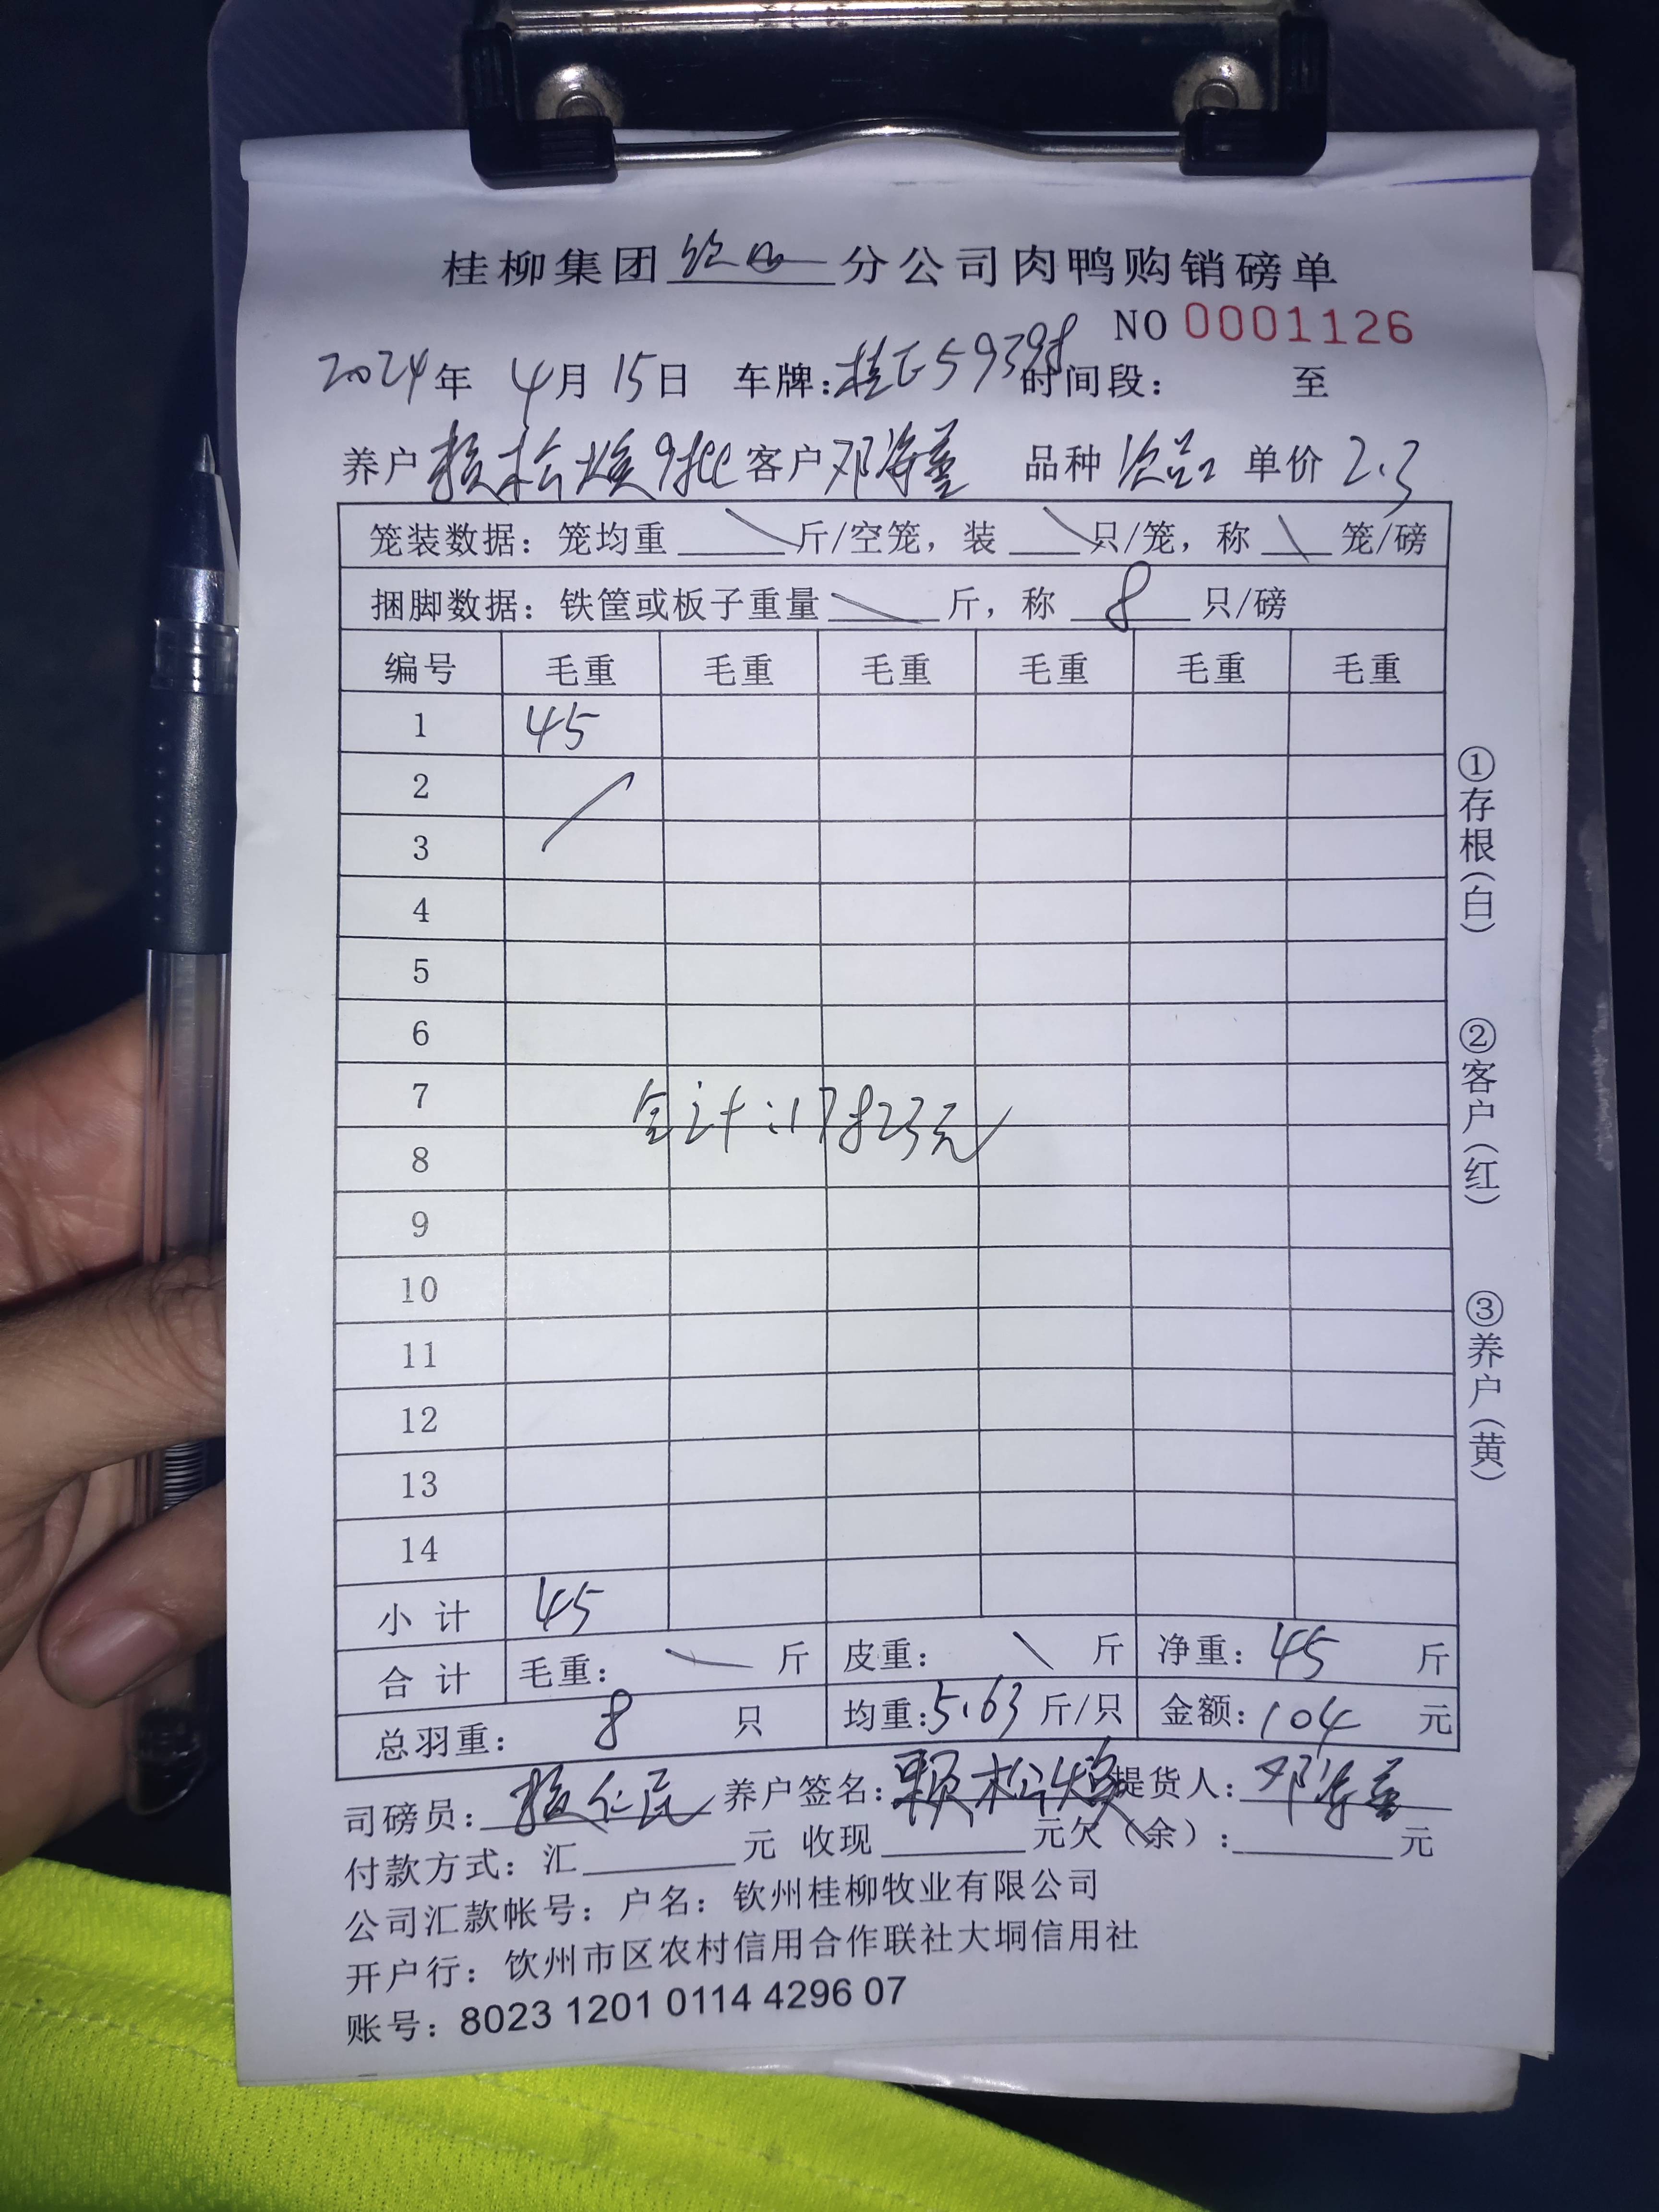 桂柳集团 分公司肉鸭购销磅单
NO 0001126
2024年 4月 15日 车牌: 时间段: 至
养户 松焕9批 客户 邓海 品种 次品 单价 2.3
笼装数据: 笼均重 \ 斤/空笼, 装 \ 只/笼, 称 \ 笼/磅
捆脚数据: 铁筐或板子重量 \ 斤, 称 8 只/磅
编号 毛重 毛重 毛重 毛重 毛重 毛重
1 45
2
3
4
5
6
7
合计:17823元
8
9
10
11
12
13
14
小计 45
合计 毛重: 斤 皮重: \ 斤 净重: 45 斤
总羽重: 8 只 均重: 5.63 斤/只 金额: 104 元
司磅员: 养户签名: 松焕 提货人: 邓海
付款方式: 汇 元 收现 元欠(余): 元
公司汇款帐号: 户名: 钦州桂柳牧业有限公司
开户行: 钦州市区农村信用合作联社大垌信用社
账号: 8023 1201 0114 4296 07
①存根(白)
②客户(红)
③养户(黄)